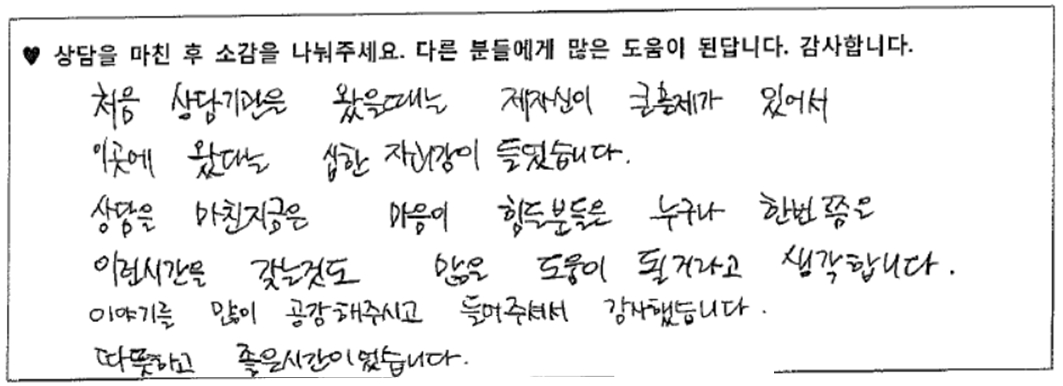 ♥ 상담을 마친 후 소감을 나눠주세요. 다른 분들에게 많은 도움이 된답니다. 감사합니다.
처음 상담기관을 왔을때는 제자신이 큰문제가 있어서
이곳에 왔다는 심한 자괴감이 들었습니다.
상담을 마친지금은 마음이 힘든분들은 누구나 한번쯤은
이런시간을 갖는것도 많은 도움이 될거라고 생각합니다.
이야기를 많이 공감해주시고 들어주셔서 감사했습니다.
따뜻하고 좋은시간이었습니다.